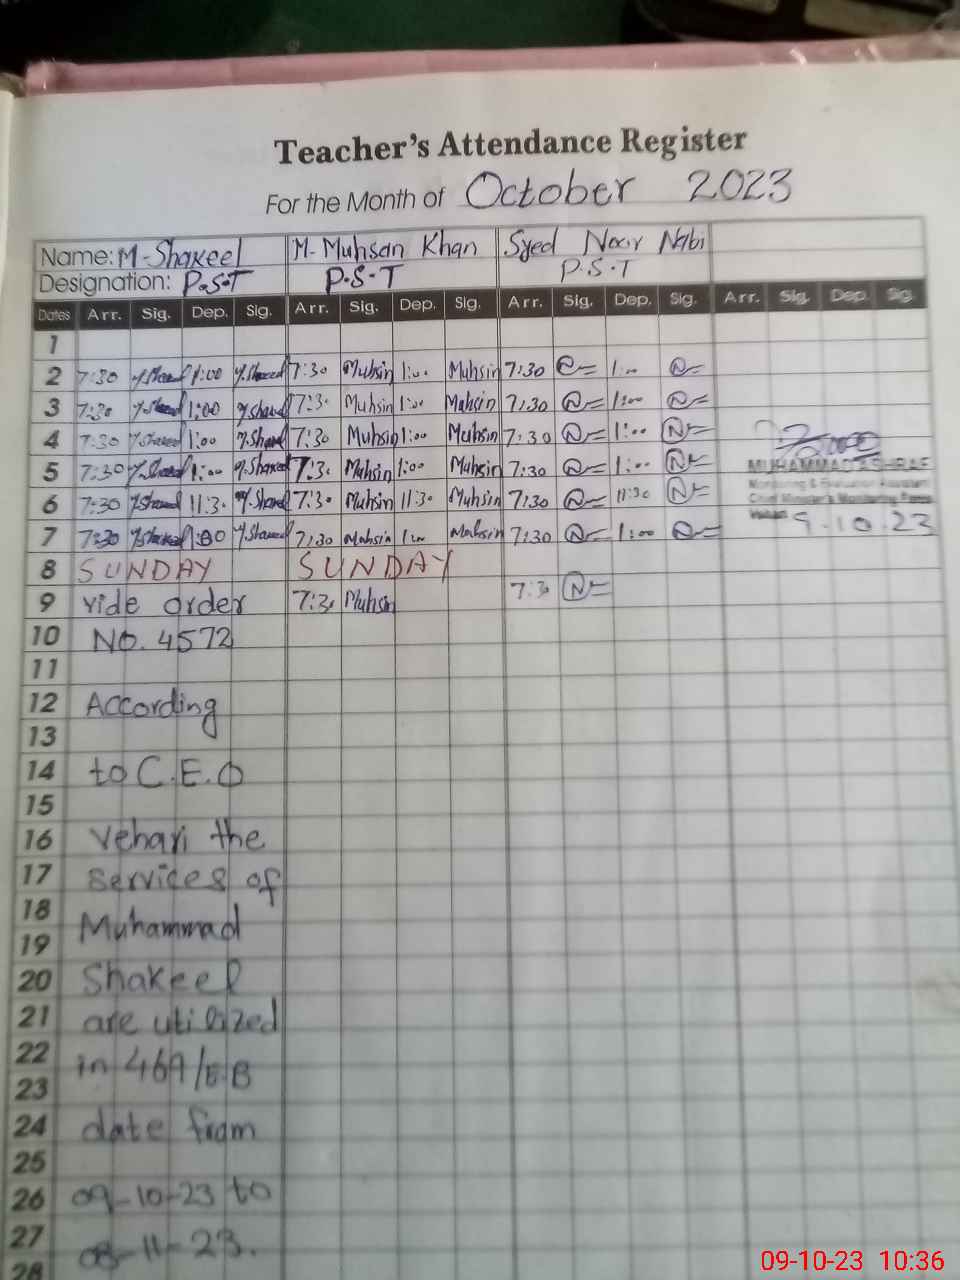 Teacher's Attendance Register
For the Month of October 2023
Name: M-Shakeel M. Muhsan Khan Syed Nabi
Designation: P.S.T P.S.T P.S.T
Dates Arr. Sig. Dep. Sig. Arr. Sig. Dep. Sig. Arr. Sig. Dep. Sig. Arr. Sig. Dep. Sig.
1
2 7:30 1:00 7:30 Muhsin 1:00 Muhsin 7:30 1:00
3 7:30 1:00 7:30 Muhsin 1:00 Muhsin 7:30 1:00
4 7:30 1:00 7:30 Muhsin 1:00 Muhsin 7:30 1:00
5 7:30 1:00 7:30 Muhsin 1:00 Muhsin 7:30 1:00
6 7:30 11:30 7:30 Muhsin 11:30 Muhsin 7:30 11:30
7 7:30 1:00 7:30 Mohsin 1:00 Mohsin 7:30 1:00
MUHAMMAD ASHRAF
Monitoring & Evaluation Assistant
Chief Minister's Monitoring Force
Vehari 9.10.23
8 SUNDAY SUNDAY
9 vide order 7:30 Muhsin 7:30
10 NO. 4572
11
12 According
13
14 to C.E.O
15
16 Vehari the
17 services of
18 Muhammad
19
20 Shakeel
21 are utilized
22 in 469/EB
23
24 date from
25
26 09-10-23 to
27 08-11-23.
28
09-10-23 10:36